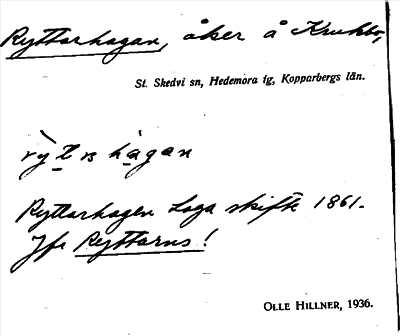 Ryttarhagan, åker å Krukbo,
St. Skedvi sn, Hedemora tg, Kopparbergs län.
rỳtɐshàgan
Ryttarhagen Laga skifte 1861.
Jfr Ryttarns!
OLLE HILLNER, 1936.